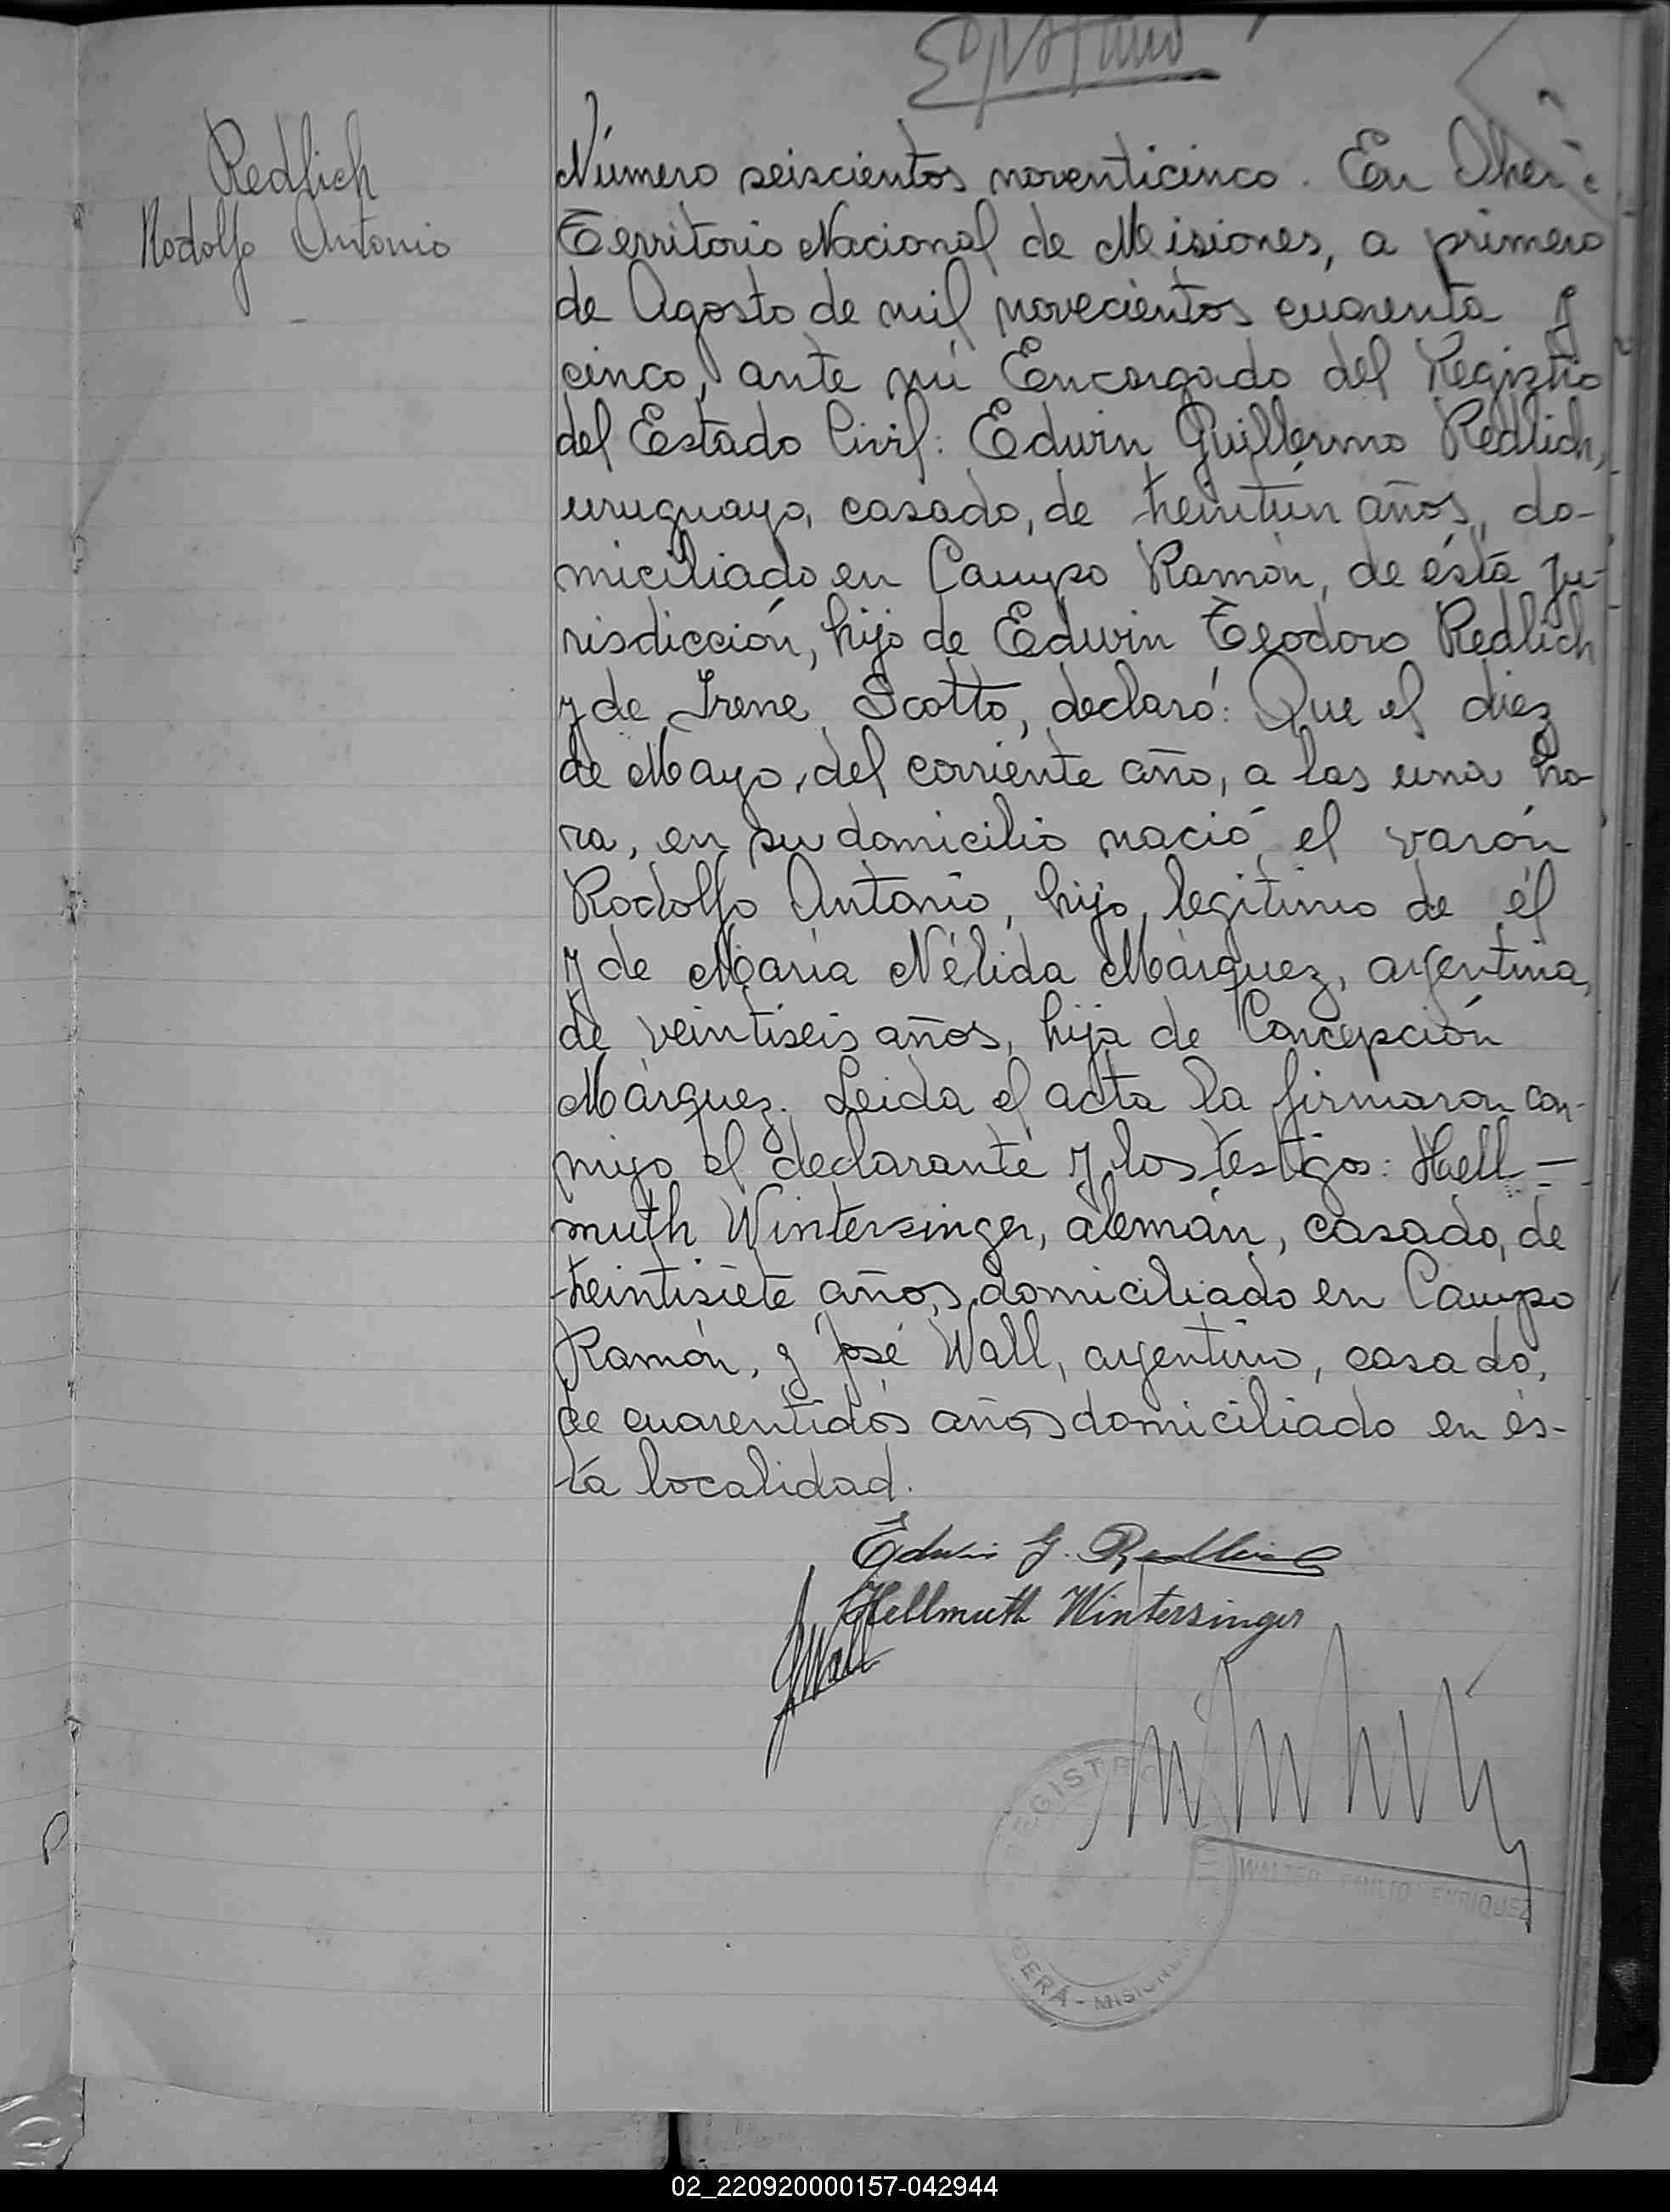 Redlich
Rodolfo Antonio
Número seiscientos noventicinco. En Oberá
Territorio Nacional de Misiones, a primero
de Agosto de mil novecientos cuarenta y
cinco, ante mí Encargado del Registro
del Estado Civil: Edwin Guillermo Redlich,
uruguayo, casado, de treintiún años, do-
miciliado en Campo Ramón, de ésta ju-
risdicción, hijo de Edwin Teodoro Redlich
y de Irene Scotto, declaró: Que el diez
de Mayo, del corriente año, a las una ho-
ra, en su domicilio nació el varón
Rodolfo Antonio, hijo legitimo de él
y de María Nélida Márquez, argentina,
de veintiseis años, hija de Concepción
Márquez. Leida el acta la firmaron con-
migo el declarante y los testigos: Hell-
muth Wintersinger, alemán, casado, de
treintisiete años, domiciliado en Campo
Ramón, y José Wall, argentino, casado,
de cuarentidós años domiciliado en és-
ta localidad.
Edwin G. Redlich
Hellmuth Wintersinger
JWall
REGISTRO
WALTER EMILIO ENRIQUEZ
OBERÁ - MISIONES
02_220920000157-042944